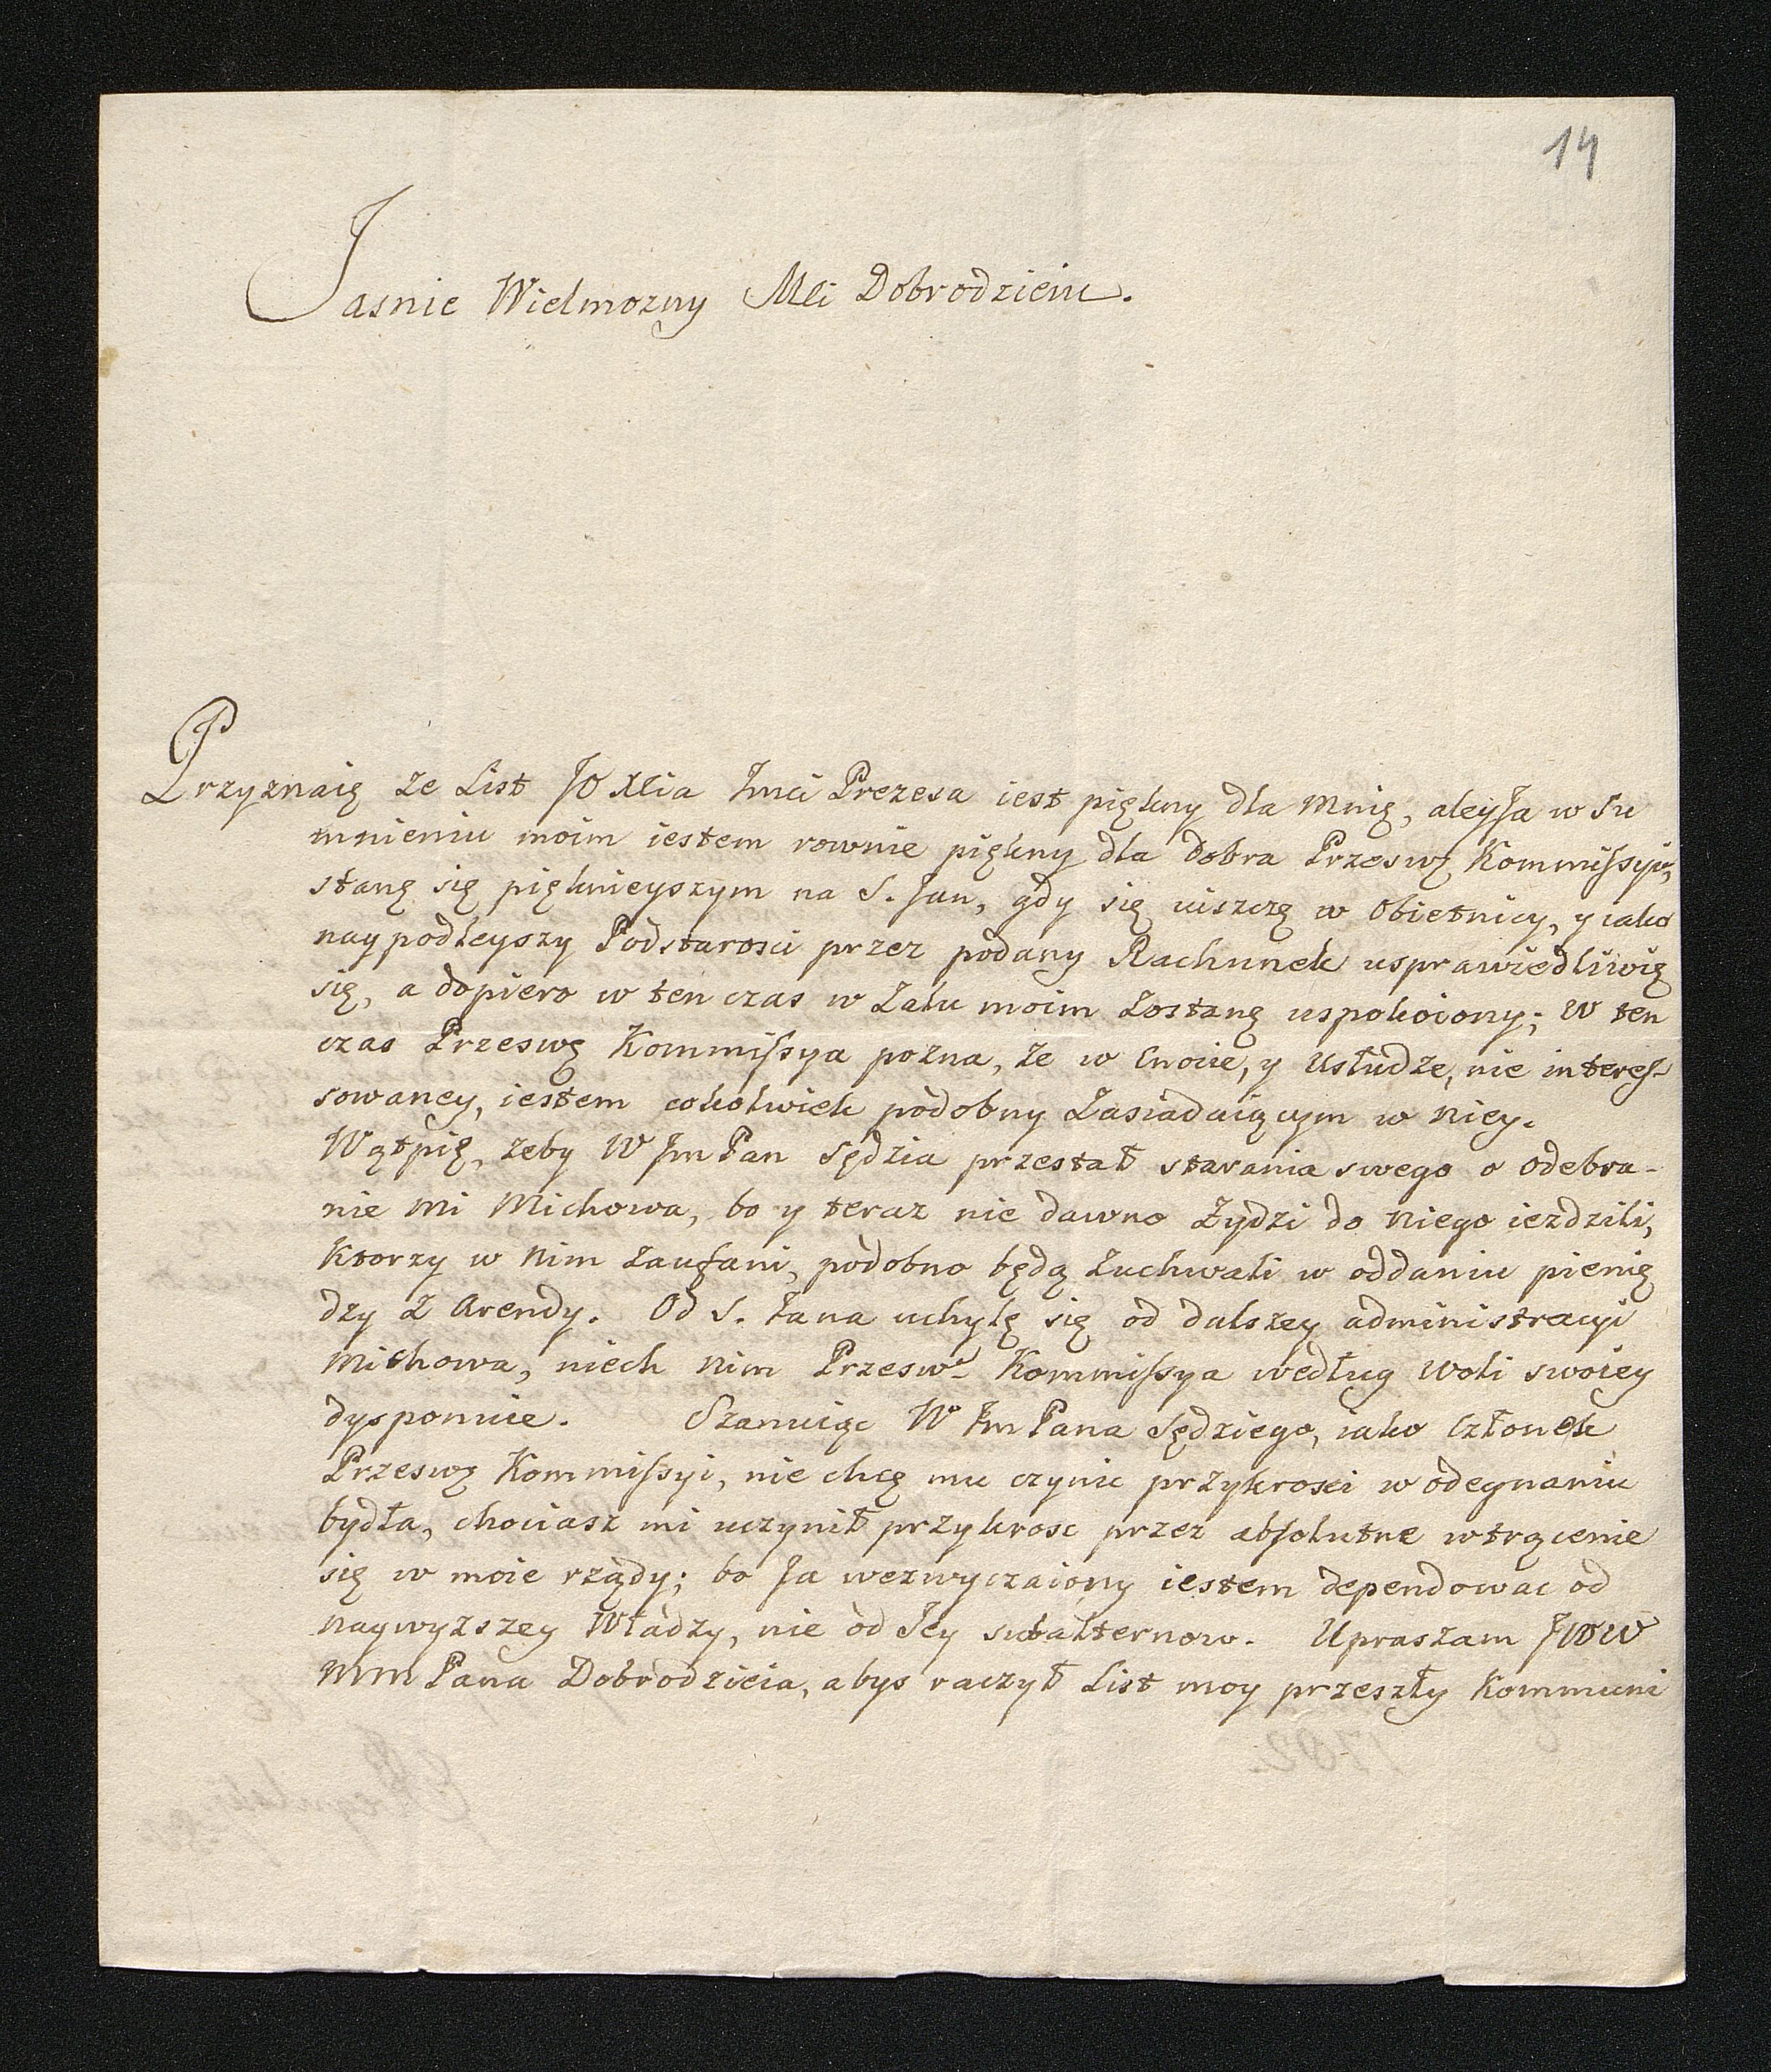 14
Jasnie Wielmozny Mci Dobrodzieiu.
Przyznaię ze List JO Xcia Jmci Prezesa iest piękny dla mnię, aley Ja w su
mnieniu moim iestem rownie piękny dla dobra Przeswę Kommissyi,
stanę się pięknieyszym na S. Jan, gdy się uiszczę w Obietnicy, y iako
naypodleyszy Podstarosci przez podany Rachunek usprawiedliwię
się, a dopiero w ten czas w Zalu moim Zostanę uspokoiony; W ten
czas Przeswę Kommissya pozna, ze w Cnocie, y Usłudze, nie interes-
sowaney, iestem cokolwiek podobny Zasiadaiącym w niey.
Wątpię, zeby W Jm Pan Sędzia przestał starania swego o odebra-
nie mi Michowa, bo y teraz nie dawno Zydzi do niego iezdzili,
Ktorzy w nim Zaufani, podobno będą Zuchwali w oddaniu pienię
dzy Z Arendy. Od S. Jana uchylę się od dalszey administracyi
Michowa, niech nim Przesw.a Kommissya według woli swoiey
dysponuie. Szanuiąc W Jm Pana Sędziego, iako Członek
Przeswę Kommissyi, nie chcę mu czynic przykrosci w odegnaniu
bydła, chociasz mi uczynił przykrosc przez absolutne wtrącenie
się w moie rządy; bo Ja wezwyczaiony iestem dependowac od
naywyzszey Władzy, nie od Jey subalternow. Upraszam JWW
MM Pana Dobrodzieia, abys raczył List moy przeszły Kommuni